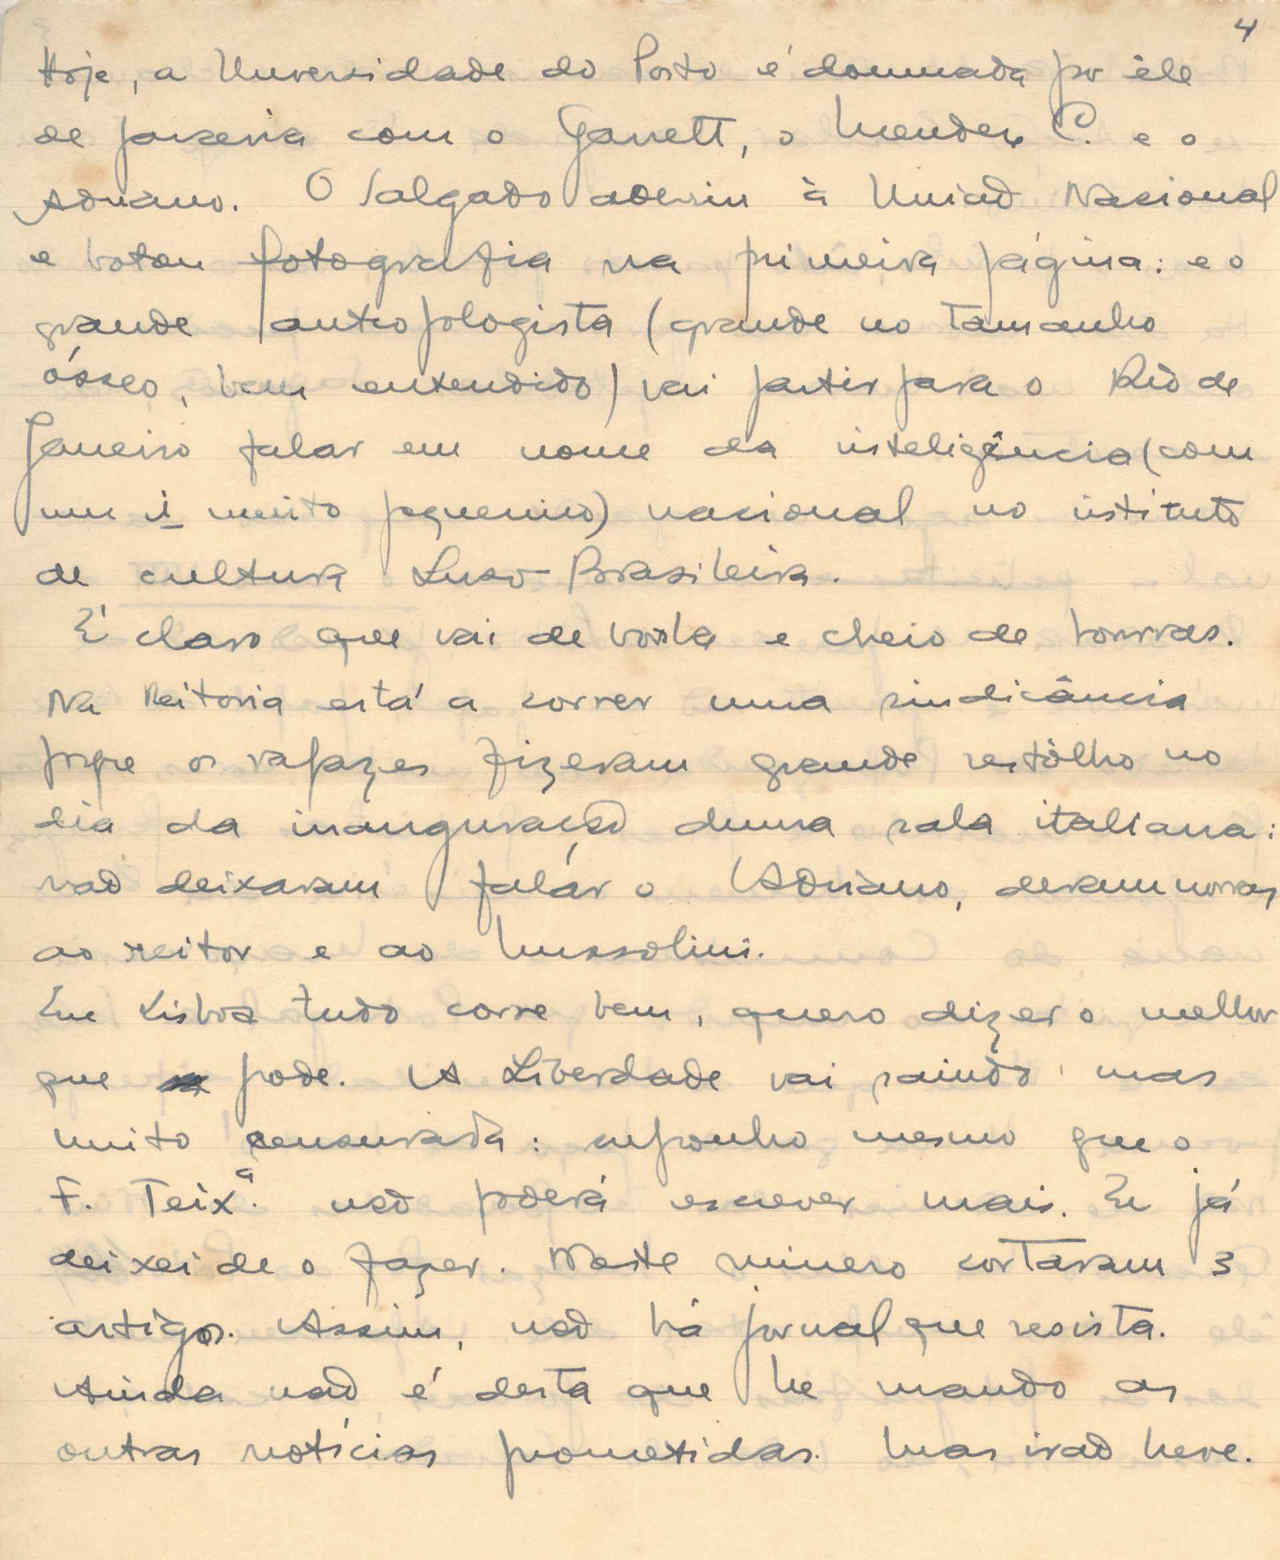 4
Hoje, a Universidade do Porto é dominada por êle
de parceria com o Garrett, o Mendes C. e o
Adriano. O Salgado aderiu à União Nacional
e botou fotografia na primeira página: e o
grande antropologista (grande no tamanho
ósseo, bem entendido) vai partir para o Rio de
Janeiro falar em nome da inteligência (com
um i muito pequenino) nacional no instituto
de cultura Luso-Brasileira.
É claro que vai de borla e cheio de honras.
Na Reitoria está a correr uma sindicância
porque os rapazes fizeram grande restôlho no
dia da inauguração duma sala italiana:
não deixaram falar o Adriano, deram morras
ao reitor e ao Mussolini.
Em Lisboa tudo corre bem, quero dizer o melhor
que pode. A Liberdade vai saindo mas
muito censurada: suponho mesmo que o
F. Teixª. não poderá escrever mais. Eu já
deixei de o fazer. Neste número cortaram 3
artigos. Assim, não há jornal que resista.
Ainda não é desta que lhe mando as
outras notícias prometidas. Mas irão breve.